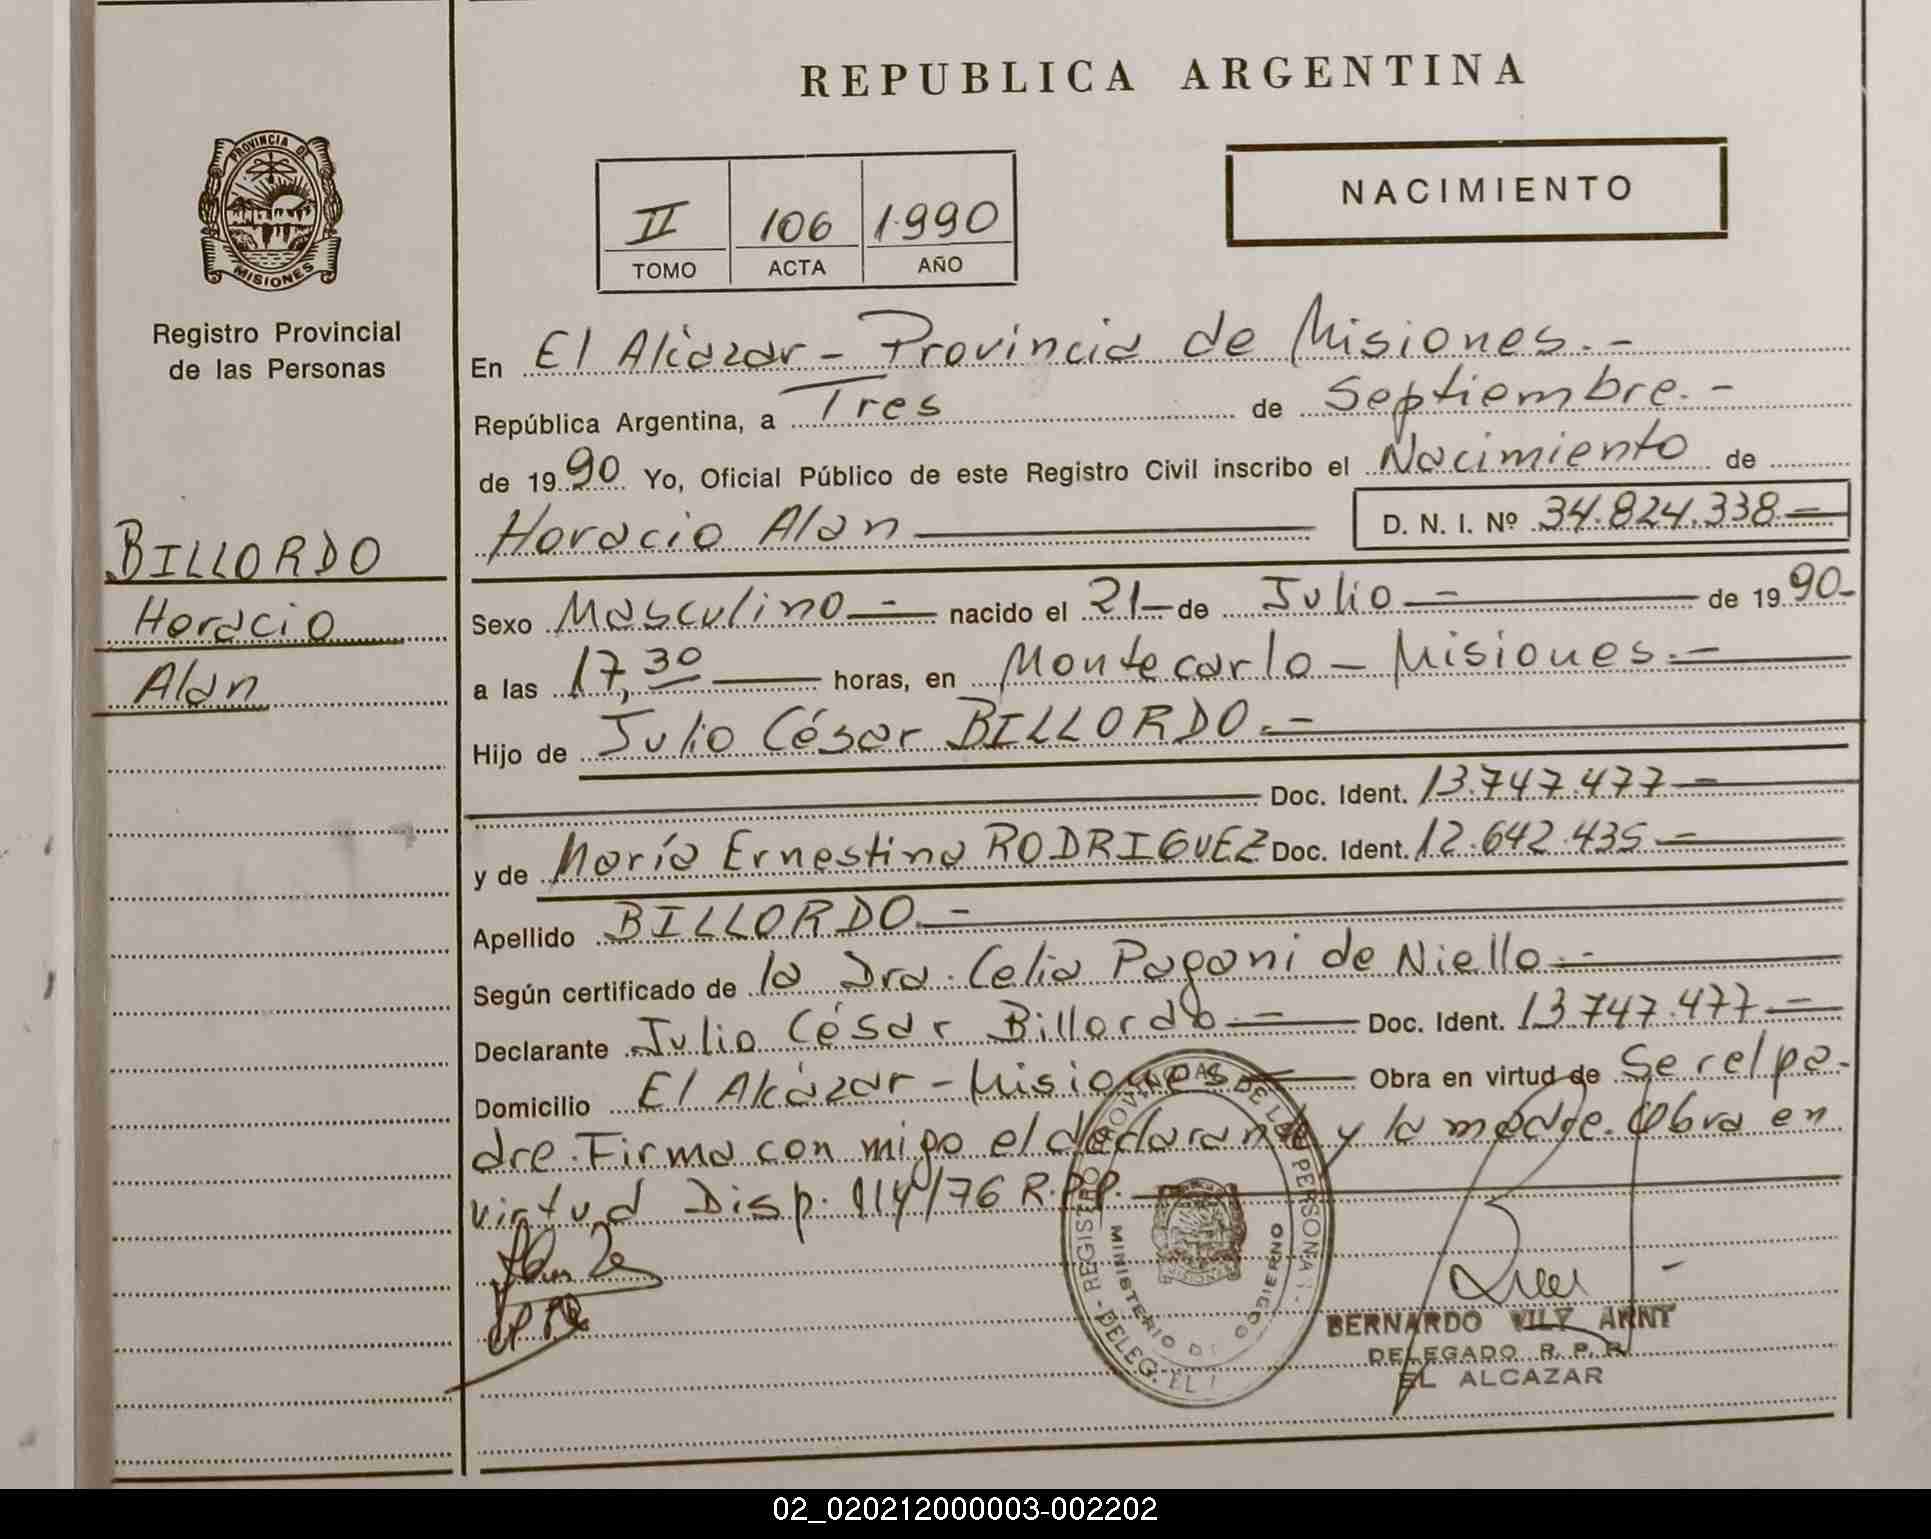 REPUBLICA ARGENTINA
PROVINCIA DE
MISIONES
Registro Provincial
de las Personas
NACIMIENTO
II 106 1.990
TOMO ACTA AÑO
En El Alcázar - Provincia de Misiones. -
República Argentina, a Tres de Septiembre. -
de 1990 Yo, Oficial Público de este Registro Civil inscribo el Nacimiento de
Horacio Alan D. N. I. Nº 34.824.338 -
BILLORDO
Horacio
Alan
Sexo Masculino - nacido el 21 - de Julio - de 1990-
a las 17,30 horas, en Montecarlo - Misiones. -
Hijo de Julio César BILLORDO. -
Doc. Ident. 13.747.477 -
y de María Ernestina RODRIGUEZ Doc. Ident. 12.642.435 -
Apellido BILLORDO. -
Según certificado de la Dra. Celia Pagani de Niello. -
Declarante Julio César Billordo. - Doc. Ident. 13.747.477. -
Domicilio El Alcázar - Misiones - Obra en virtud de Ser el pa-
dre. Firma con migo el declarante y la madre. Obra en
virtud Disp. 114/76 R.P.P.
REGISTRO PROVINCIAL DE LAS PERSONAS - DELEG. EL
MINISTERIO DE GOBIERNO
BERNARDO VILY ARNT
DELEGADO R. P. P.
EL ALCAZAR
02_020212000003-002202